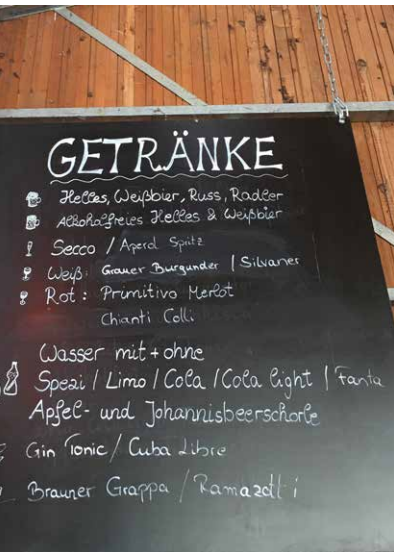 GETRÄNKE
Helles, Weißbier, Russ, Radler
Alkoholfreies Helles & Weißbier
Secco / Aperol Spritz
Weiß: Grauer Burgunder / Silvaner
Rot: Primitivo Merlot
Chianti Colli
Wasser mit + ohne
Spezi / Limo / Cola / Cola light / Fanta
Apfel- und Johannisbeerschorle
Gin Tonic / Cuba Libre
Brauner Grappa / Ramazotti